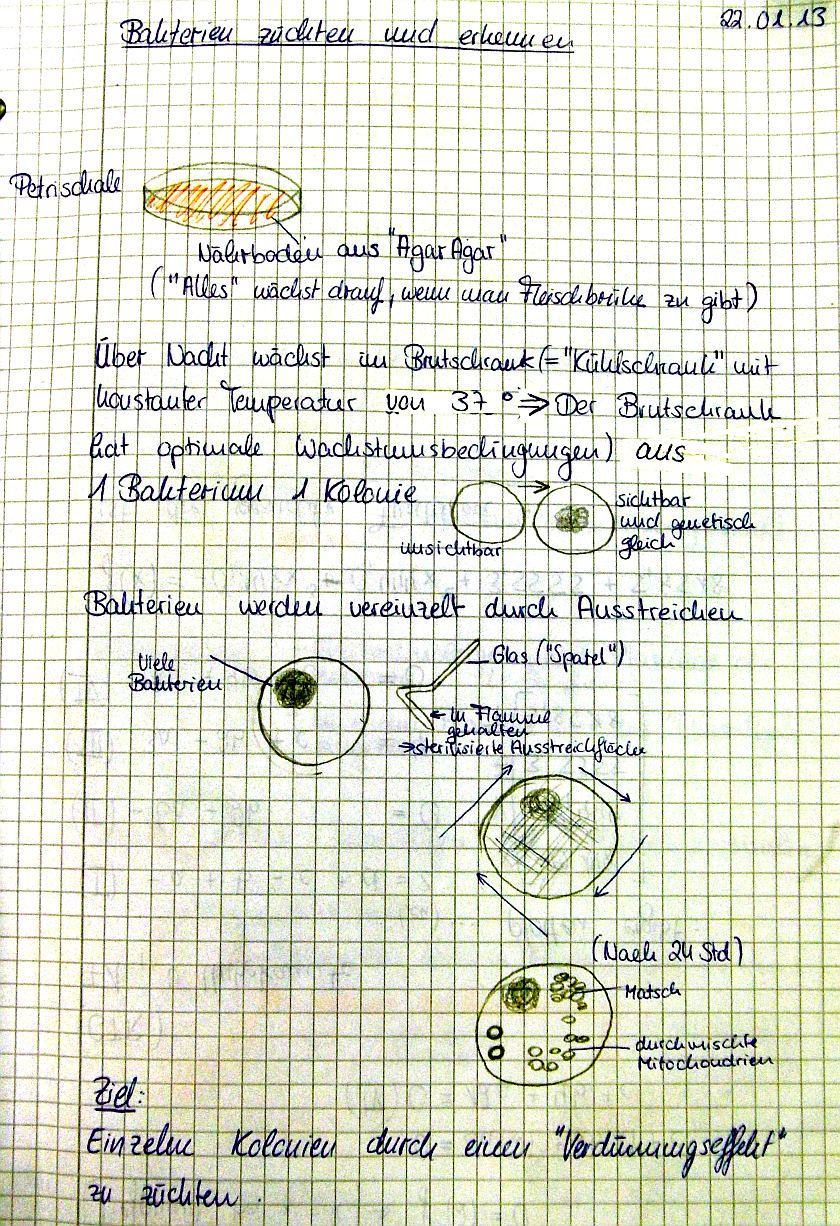 22.01.13
Bakterien züchten und erkennen
Petrischale
Nährboden aus "Agar Agar"
("Alles" wächst drauf, wenn man Fleischbrühe zu gibt)
Über Nacht wächst im Brutschrank (="Kühlschrank" mit
konstanter Temperatur von 37° ⇒ Der Brutschrank
hat optimale Wachstumsbedingungen) aus
1 Bakterium 1 Kolonie
unsichtbar
sichtbar
und genetisch
gleich
Bakterien werden vereinzelt durch Ausstreichen
Viele
Bakterien
Glas ("Spatel")
← in Flamme
gehalten
⇒ sterilisierte Ausstreichfläche
(Nach 24 Std)
Matsch
durchmischte
Mitochondrien
Ziel:
Einzelne Kolonien durch einen "Verdünnungseffekt"
zu züchten.